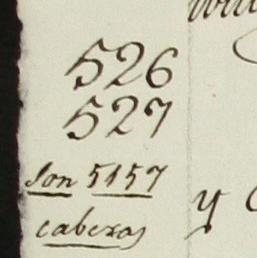 526
527
Son 5157
cabezas
y